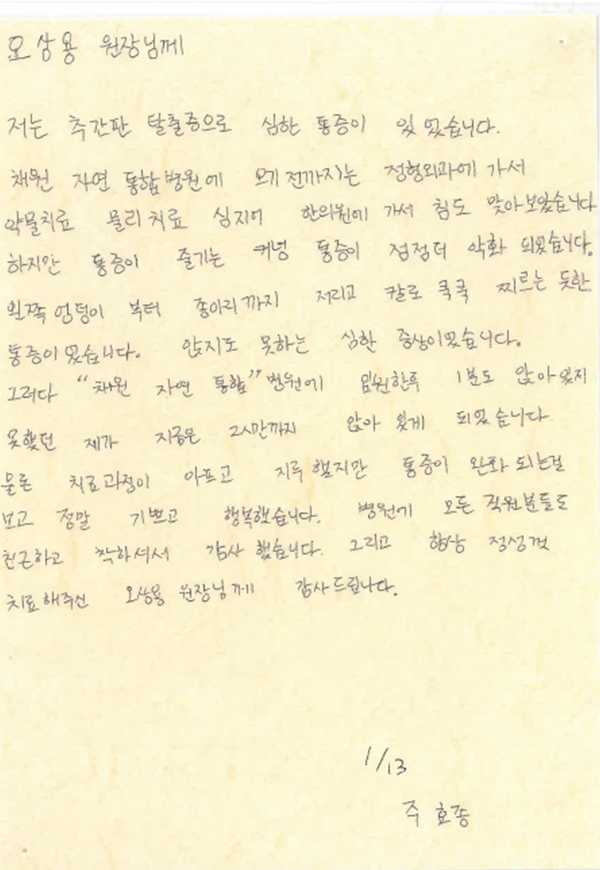 오상용 원장님께
저는 추간판 탈출증으로 심한 통증이 있었습니다.
채원 자연 통합병원에 오기 전까지는 정형외과에 가서
약물치료 물리치료 심지어 한의원에 가서 침도 맞아보았습니다
하지만 통증이 줄기는 커녕 통증이 점점더 악화 되었습니다.
왼쪽 엉덩이 부터 종아리까지 저리고 칼로 쿡쿡 찌르는 듯한
통증이었습니다. 앉지도 못하는 심한 증상이었습니다.
그러다 "채원 자연 통합"병원에 입원한후 1분도 앉아있지
못했던 제가 지금은 2시간까지 앉아 있게 되었습니다
물론 치료과정이 아프고 지루했지만 통증이 완화 되는걸
보고 정말 기쁘고 행복했습니다. 병원에 모든 직원분들도
친근하고 착하셔서 감사했습니다. 그리고 항상 정성껏
치료해주신 오상용 원장님께 감사드립니다.
1/13
주효종